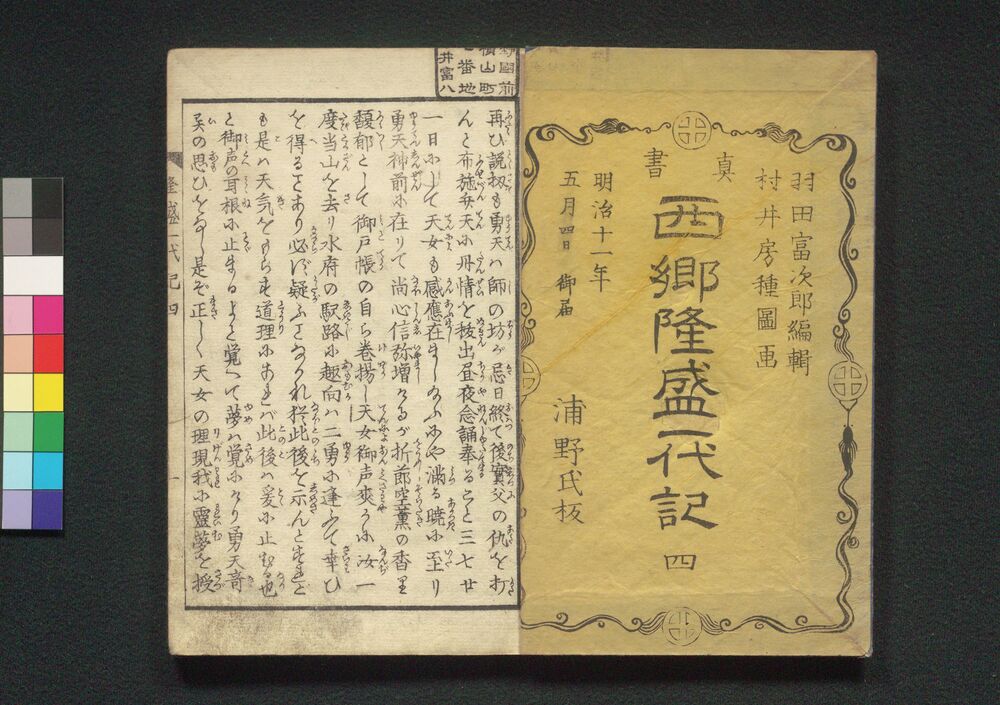 羽田富次郎編輯
村井房種圖画
真書
西郷隆盛一代記 四
明治十一年
五月四日 御届
浦野氏板
再び説扨も勇天ハ師の坊が忌日終て後實父の仇を打
んと布施弁天に丹情を抜出昼夜念誦奉ること三七廿
一日にして天女も感應在ましなふにや満る暁に至り
勇天神前に在りて尚心信弥増ける折節空薫の香里
馥郁として御戸帳の自ら巻揚し天女御声爽かに汝一
度当山を去り水府の駅路に趣向ハ二勇に逢ふて幸ひ
を得ることあり必ず疑ふことなかれ此後を示んと
も是ハ天気をもらす道理にあれバ此後ハ爰に止むる也
と御声の耳根に止まるよと覚へて夢ハ覚にけり勇天奇
異の思ひをなし是ぞ正しく天女の理現我に霊夢を授
隆盛一代記 四 一
國前
横山町
番地
井富八